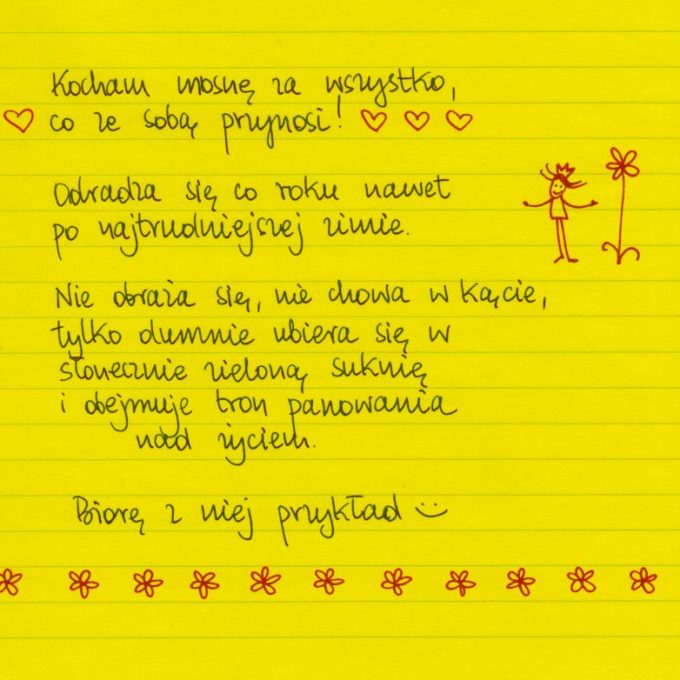 Kocham wiosnę za wszystko,
co ze sobą przynosi!
Odradza się co roku nawet
po najtrudniejszej zimie.
Nie obraża się, nie chowa w kącie,
tylko dumnie ubiera się w
słonecznie zieloną suknię
i obejmuje tron panowania
nad życiem.
Biorę z niej przykład